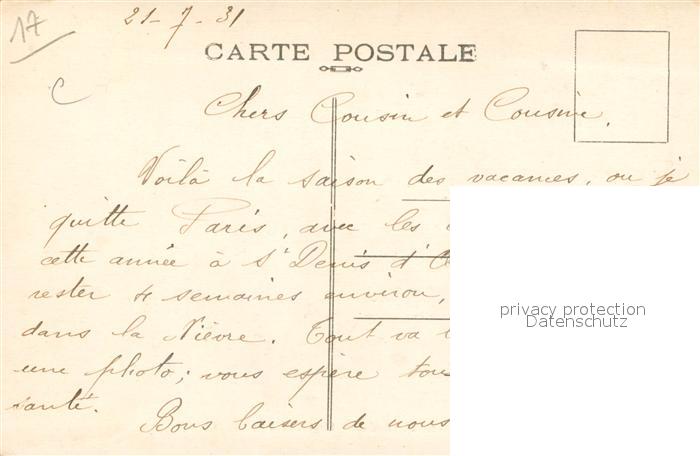 17
21-7-31
CARTE POSTALE
C
Chers Cousin et Cousine,
Voilà la saison des vacances, ou je
quitte Paris, avec les
cette année à St Denis d'
rester 4 semaines environ,
dans la Nièvre. Tout va
une photo; vous espère
santé.
Bons baisers de nous
privacy protection
Datenschutz